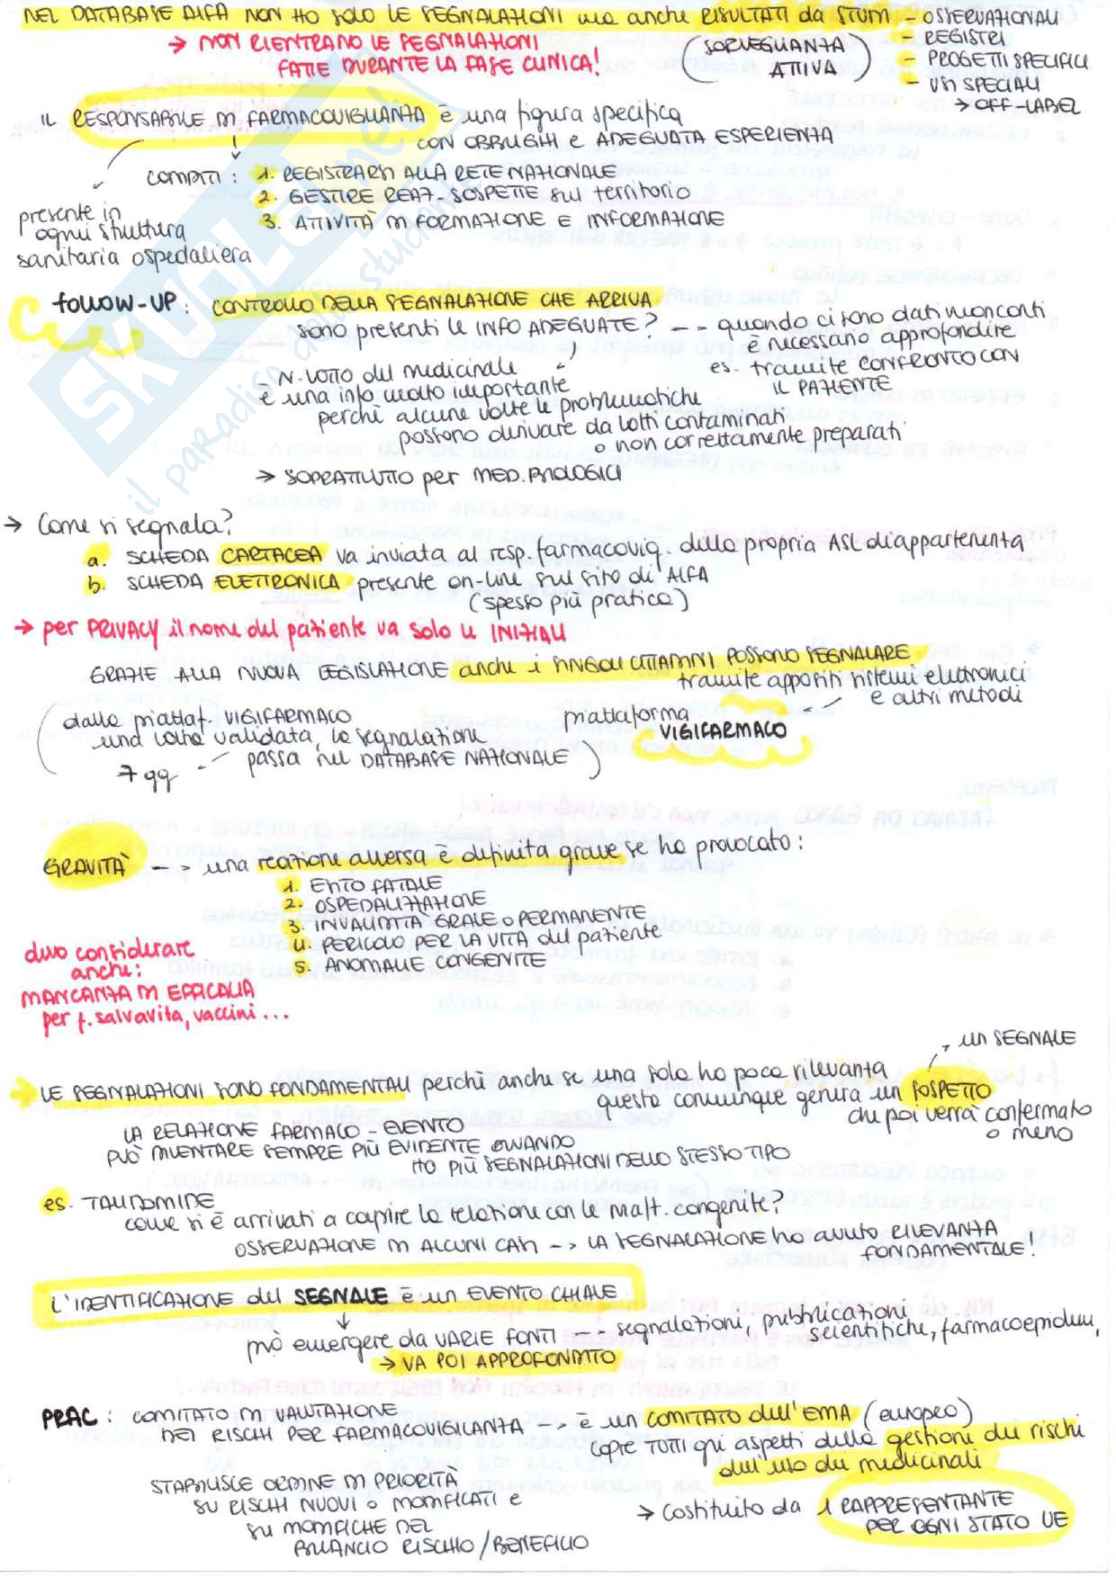 NEL DATABASE AIFA NON HO SOLO LE SEGNALAZIONI ma anche RISULTATI da STUDI - OSSERVAZIONALI
→ NON RIENTRANO LE SEGNALAZIONI (SORVEGLIANZA - REGISTRI
FATTE DURANTE LA FASE CLINICA! ATTIVA) - PROGETTI SPECIFICI
- USI SPECIALI
→ OFF-LABEL
IL RESPONSABILE DI FARMACOVIGILANZA è una figura specifica
CON OBBLIGHI e ADEGUATA ESPERIENZA
COMPITI: 1. REGISTRARSI ALLA RETE NAZIONALE
2. GESTIRE REAZ. SOSPETTE sul territorio
3. ATTIVITÀ DI FORMAZIONE E INFORMAZIONE
presente in
ogni struttura
sanitaria ospedaliera
follow-UP: CONTROLLO DELLA SEGNALAZIONE CHE ARRIVA
sono presenti le INFO ADEGUATE? -- quando ci sono dati mancanti
è necessario approfondire
es. tramite CONFRONTO CON
IL PAZIENTE
- N. LOTTO del medicinale
è una info molto importante
perchè alcune volte le problematiche
possono derivare da lotti contaminati
o non correttamente preparati
→ SOPRATTUTTO per MED. BIOLOGICI
→ Come si segnala?
a. SCHEDA CARTACEA va inviata al resp. farmacovig. della propria ASL di appartenenza
b. SCHEDA ELETTRONICA presente on-line sul sito di AIFA
(spesso più pratica)
→ per PRIVACY il nome del paziente va solo le INIZIALI
GRAZIE ALLA NUOVA LEGISLAZIONE anche i SINGOLI CITTADINI POSSONO SEGNALARE
tramite appositi sistemi elettronici
e altri metodi
piattaforma
VIGIFARMACO
(dalla piattaf. VIGIFARMACO
una volta validata, la segnalazione
7 gg -- passa nel DATABASE NAZIONALE)
GRAVITÀ --> una reazione avversa è definita grave se ha provocato:
1. ESITO FATALE
2. OSPEDALIZZAZIONE
3. INVALIDITÀ GRAVE o PERMANENTE
4. PERICOLO PER LA VITA del paziente
5. ANOMALIE CONGENITE
devo considerare
anche:
MANCANZA DI EFFICACIA
per f. salvavita, vaccini...
→ LE SEGNALAZIONI SONO FONDAMENTALI perchè anche se una sola ha poca rilevanza
questa comunque genera un SOSPETTO → un SEGNALE
che poi verrà confermato
o meno
LA RELAZIONE FARMACO-EVENTO
PUÒ DIVENTARE SEMPRE PIÙ EVIDENTE QUANDO
HO PIÙ SEGNALAZIONI DELLO STESSO TIPO
es. TALIDOMIDE
come si è arrivati a capire la relazione con le malf. congenite?
OSSERVAZIONE DI ALCUNI CASI --> LA SEGNALAZIONE ha avuto RILEVANZA
FONDAMENTALE!
L'IDENTIFICAZIONE del SEGNALE è un EVENTO CHIAVE
può emergere da VARIE FONTI - segnalazioni, pubblicazioni
scientifiche, farmacoepidem,
→ VA POI APPROFONDITO
PRAC: COMITATO DI VALUTAZIONE
DEI RISCHI PER FARMACOVIGILANZA --> è un COMITATO dell'EMA (europeo)
copre TUTTI gli aspetti della gestione dei rischi
dell'uso dei medicinali
STABILISCE ORDINE DI PRIORITÀ
SU RISCHI NUOVI o MODIFICATI e
SU MODIFICHE DEL
BILANCIO RISCHIO/BENEFICIO
→ costituito da 1 RAPPRESENTANTE
PER OGNI STATO UE
SKUOLA.net
il paradiso dello studente